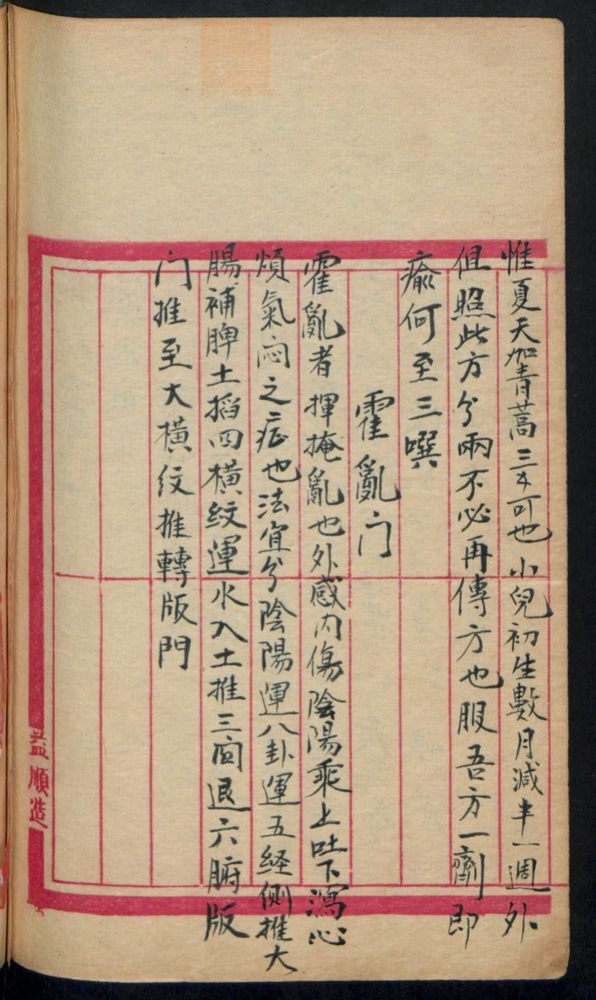 惟夏天加青蒿三分可也小兒初生數月減半一週外
但照此方分兩不必再傳方也服吾方一劑即
瘉何至三噀
霍亂门
霍亂者揮掩亂也外感内傷陰陽乘上吐下瀉心
煩氣闷之症也法宜分陰陽運八卦運五经側推大
腸補脾土搯四橫纹運水入土推三関退六腑版
门推至大橫纹推轉版門
益順造